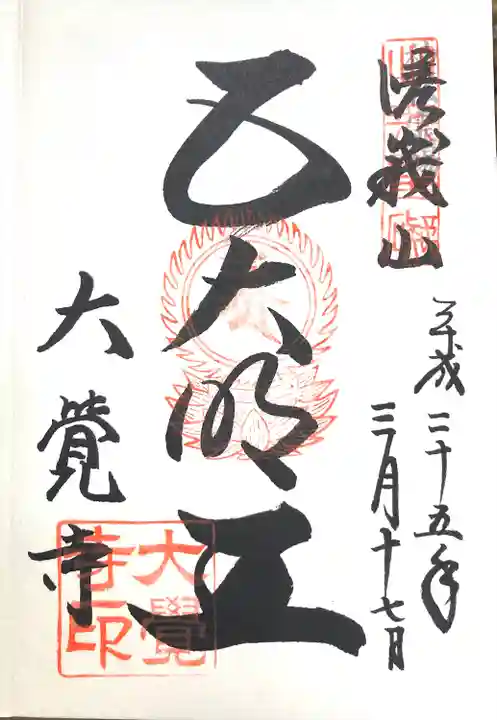 嵯峨山
平成二十五年
三月十七日
五大明王
大覺寺
大覺
寺印